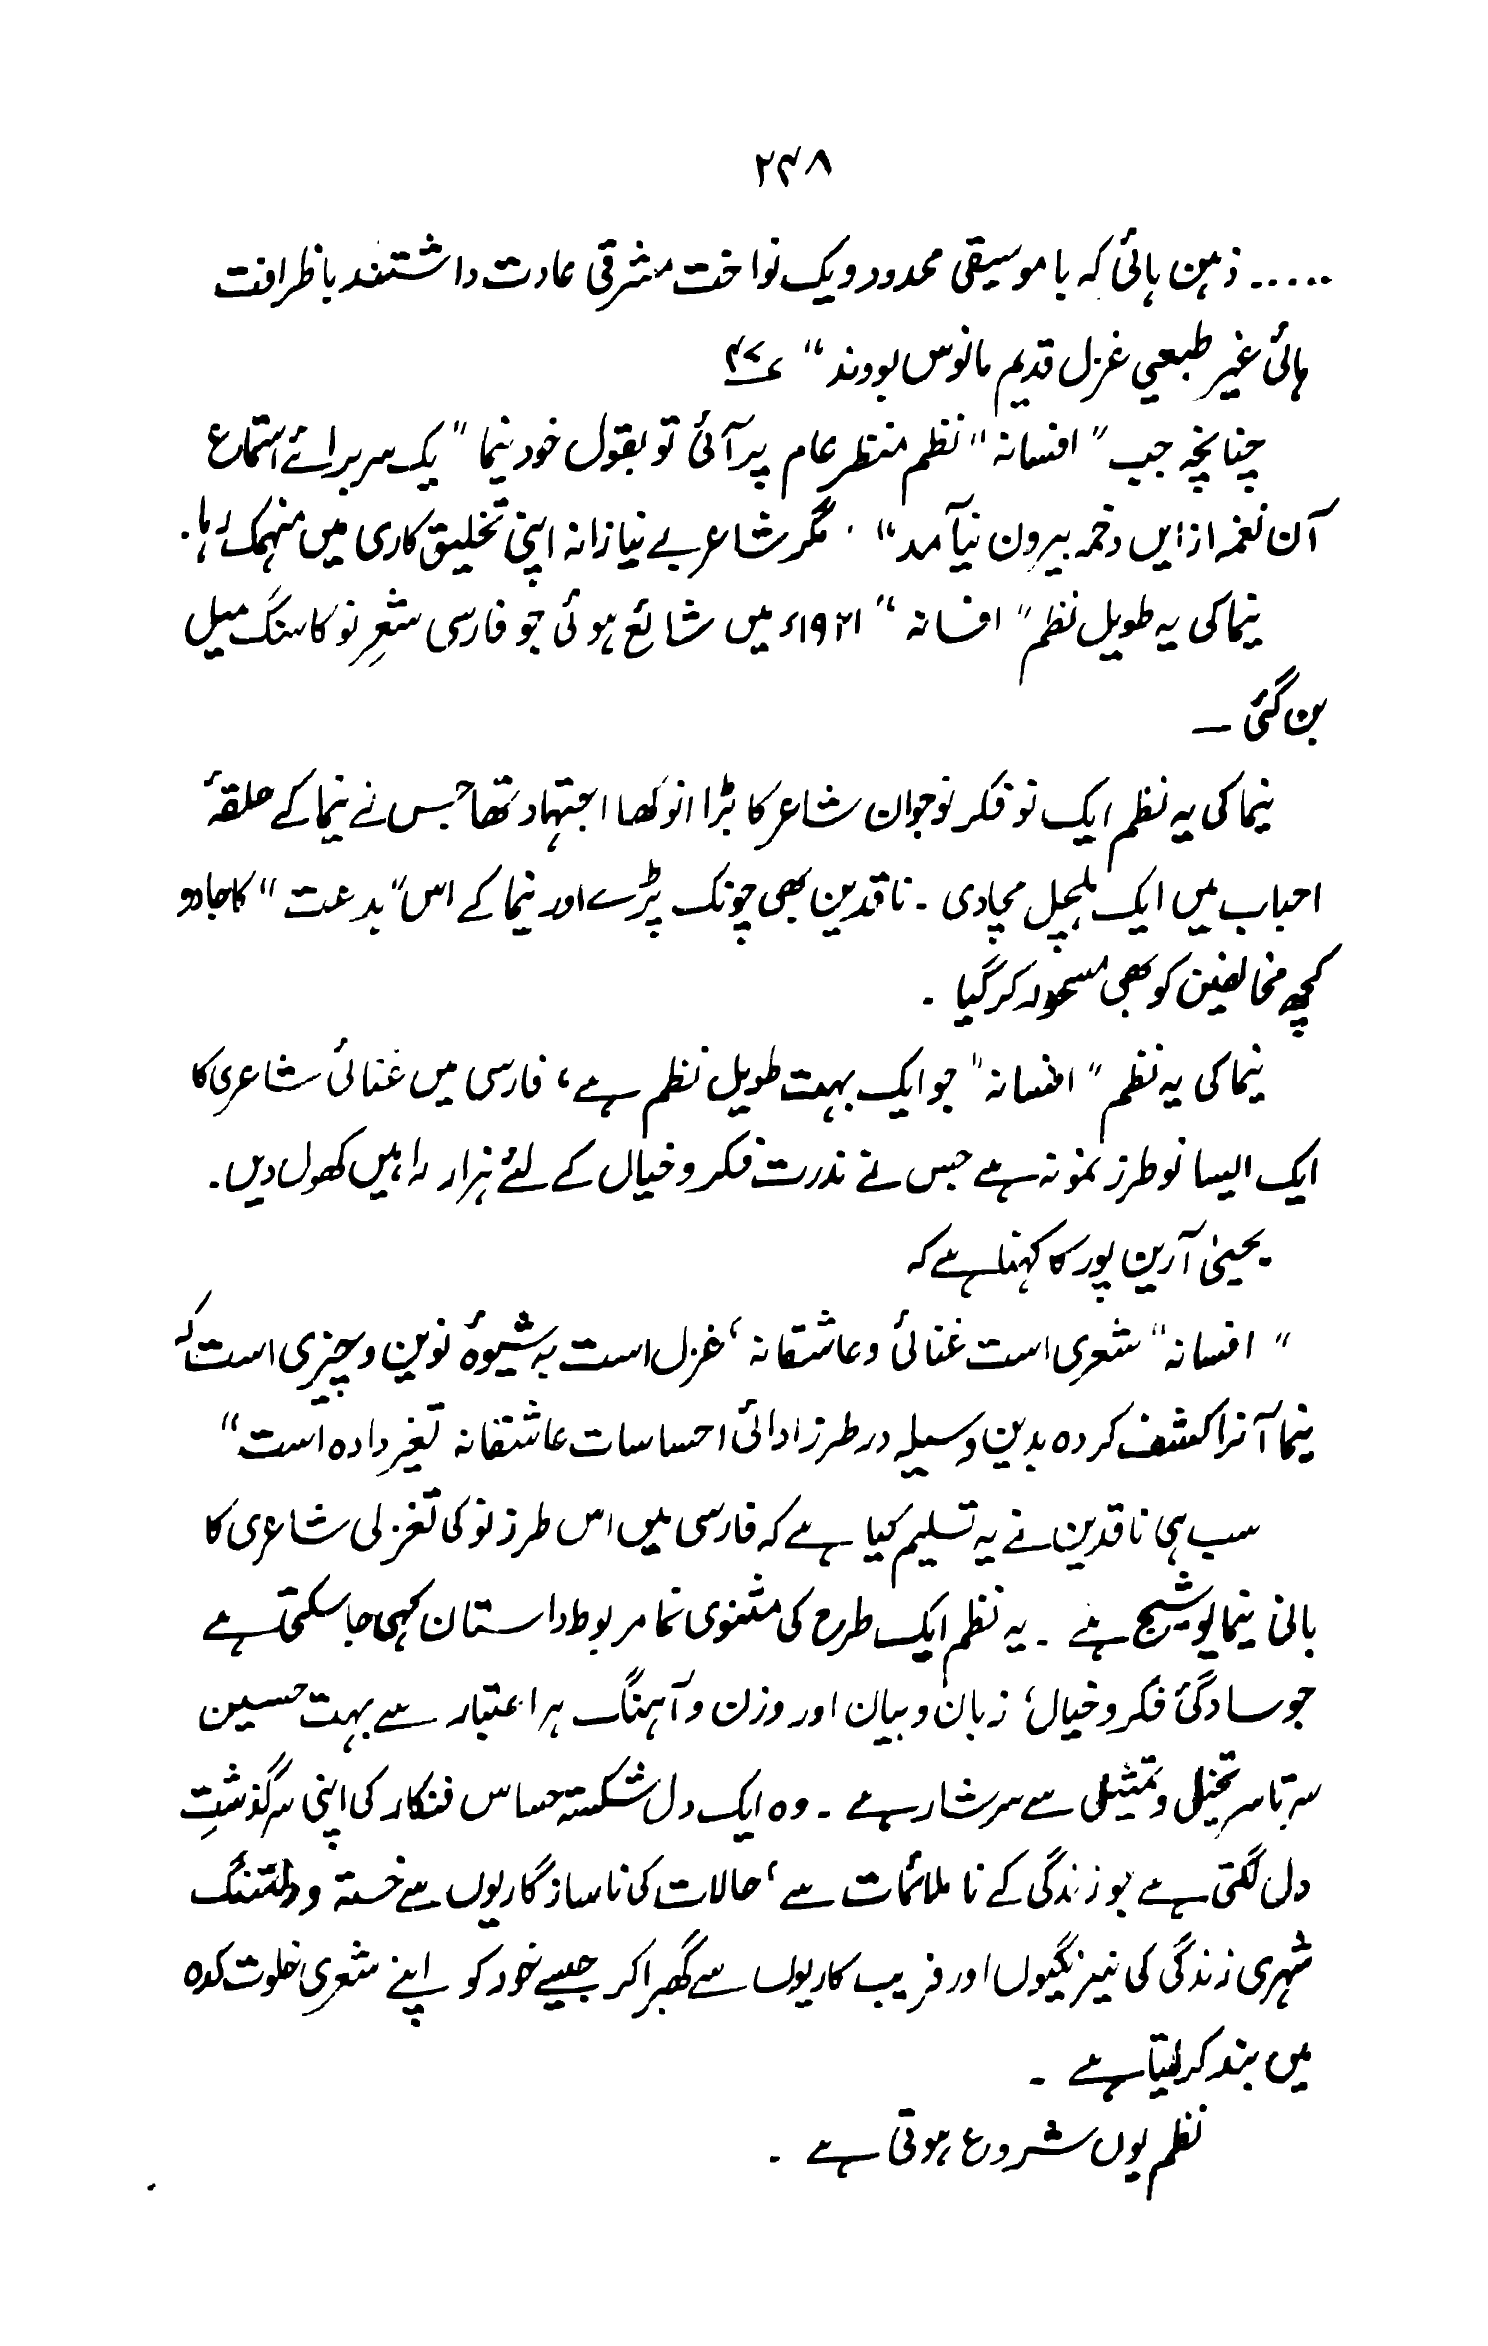 ۲۴۸
..... ذہن ہائی کہ با موسیقی محدود ویک نواخت مشرقی عادت داشتند با ظرافت
ہائی غیر طبعیی غزل قدیم مانوس بووند“ ؎۴۷
چنانچہ جب ”افسانہ“ نظم منظر عام پر آئی تو بقول خود نیما ”یک سر برائے استماع
آن نغمہ از ایں دخمہ بیرون نیآمد“ . مگر شاعر بے نیازانہ اپنی تخلیق کاری میں منہمک رہا۔
نیما کی یہ طویل نظم ”افسانہ“ ۱۹۲۱ء میں شائع ہوئی جو فارسی شعرِ نو کا سنگ میل
بن گئی ۔
نیما کی یہ نظم ایک نو فکر نوجوان شاعر کا بڑا انوکھا اجتہاد تھا جس نے نیما کے حلقۂ
احباب میں ایک ہلچل مچا دی ۔ ناقدین بھی چونک پڑے اور نیما کے اس ”بدعت“ کا جادو
کچھ مخالفین کو بھی مسحور کر گیا ۔
نیما کی یہ نظم ”افسانہ“ جو ایک بہت طویل نظم ہے، فارسی میں غنائی شاعری کا
ایک ایسا نو طرز نمونہ ہے جس نے ندرت فکر و خیال کے لئے ہزار راہیں کھول دیں۔
یحییٰ آرین پور کا کہنا ہے کہ
”افسانہ“ شعری است غنائی و عاشقانہ، غزل است بہ شیوۂ نوین و چیزی است کہ
نیما آنرا کشف کردہ بدین وسیلہ در طرز ادائی احساسات عاشقانہ تغیر دادہ است“
سب ہی ناقدین نے یہ تسلیم کیا ہے کہ فارسی میں اس طرز نو کی تغزلی شاعری کا
بانی نیما یوشیج ہے ۔ یہ نظم ایک طرح کی مثنوی نما مربوط داستان کہی جا سکتی ہے
جو سادگیٔ فکر و خیال، زبان و بیان اور وزن و آہنگ ہر اعتبار سے بہت حسین
سرتاسر تخیلی و تمثیلی سے سرشار ہے ۔ وہ ایک دل شکستہ حساس فنکار کی اپنی سرگذشتِ
دل لگتی ہے جو زندگی کے نا ملائمات سے، حالات کی ناسازگاریوں سے خستہ و دلتنگ
شہری زندگی کی نیرنگیوں اور فریب کاریوں سے گھبرا کر جیسے خود کو اپنے شعری خلوت کدہ
میں بند کر لیتا ہے ۔
نظم یوں شروع ہوتی ہے ۔